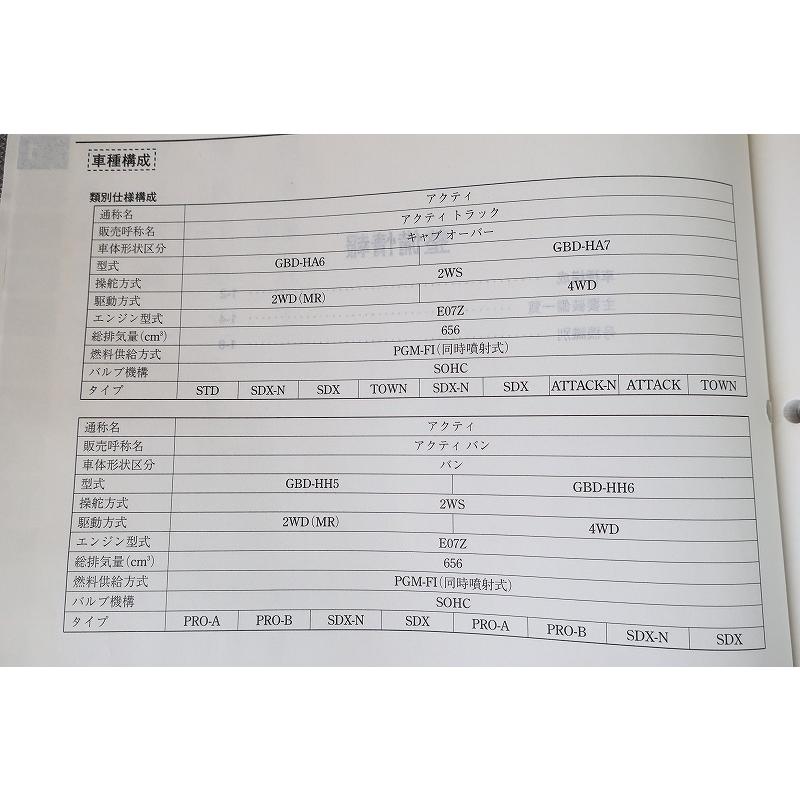 車種構成
類別仕様構成
通称名 アクティ
販売呼称名 アクティ トラック
車体形状区分 キャブ オーバー
型式 GBD-HA6 GBD-HA7
操舵方式 2WS
駆動方式 2WD(MR) 4WD
エンジン型式 E07Z
総排気量(cm³) 656
燃料供給方式 PGM-FI(同時噴射式)
バルブ機構 SOHC
タイプ STD SDX-N SDX TOWN SDX-N SDX ATTACK-N ATTACK TOWN
通称名 アクティ
販売呼称名 アクティ バン
車体形状区分 バン
型式 GBD-HH5 GBD-HH6
操舵方式 2WS
駆動方式 2WD(MR) 4WD
エンジン型式 E07Z
総排気量(cm³) 656
燃料供給方式 PGM-FI(同時噴射式)
バルブ機構 SOHC
タイプ PRO-A PRO-B SDX-N SDX PRO-A PRO-B SDX-N SDX